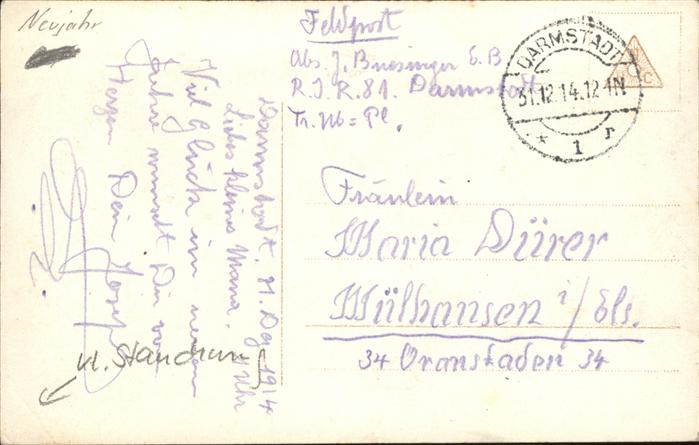 Neujahr
Feldpost
Abs. J. Buesinger E.B
R.I.R.81. Darmstadt
Tr. Üb = Pl.
DARMSTADT
31.12.14.12-1N
* 1 r
Darmstadt, 31. Dez. 1914
Uhr
Liebes kleine Maria.
Viel Glück im neuen
Jahre wünscht Dir von
Herzen Dein Josef
Fräulein
Maria Dürer
Mülhausen i/Els.
34 Oranstaden 34